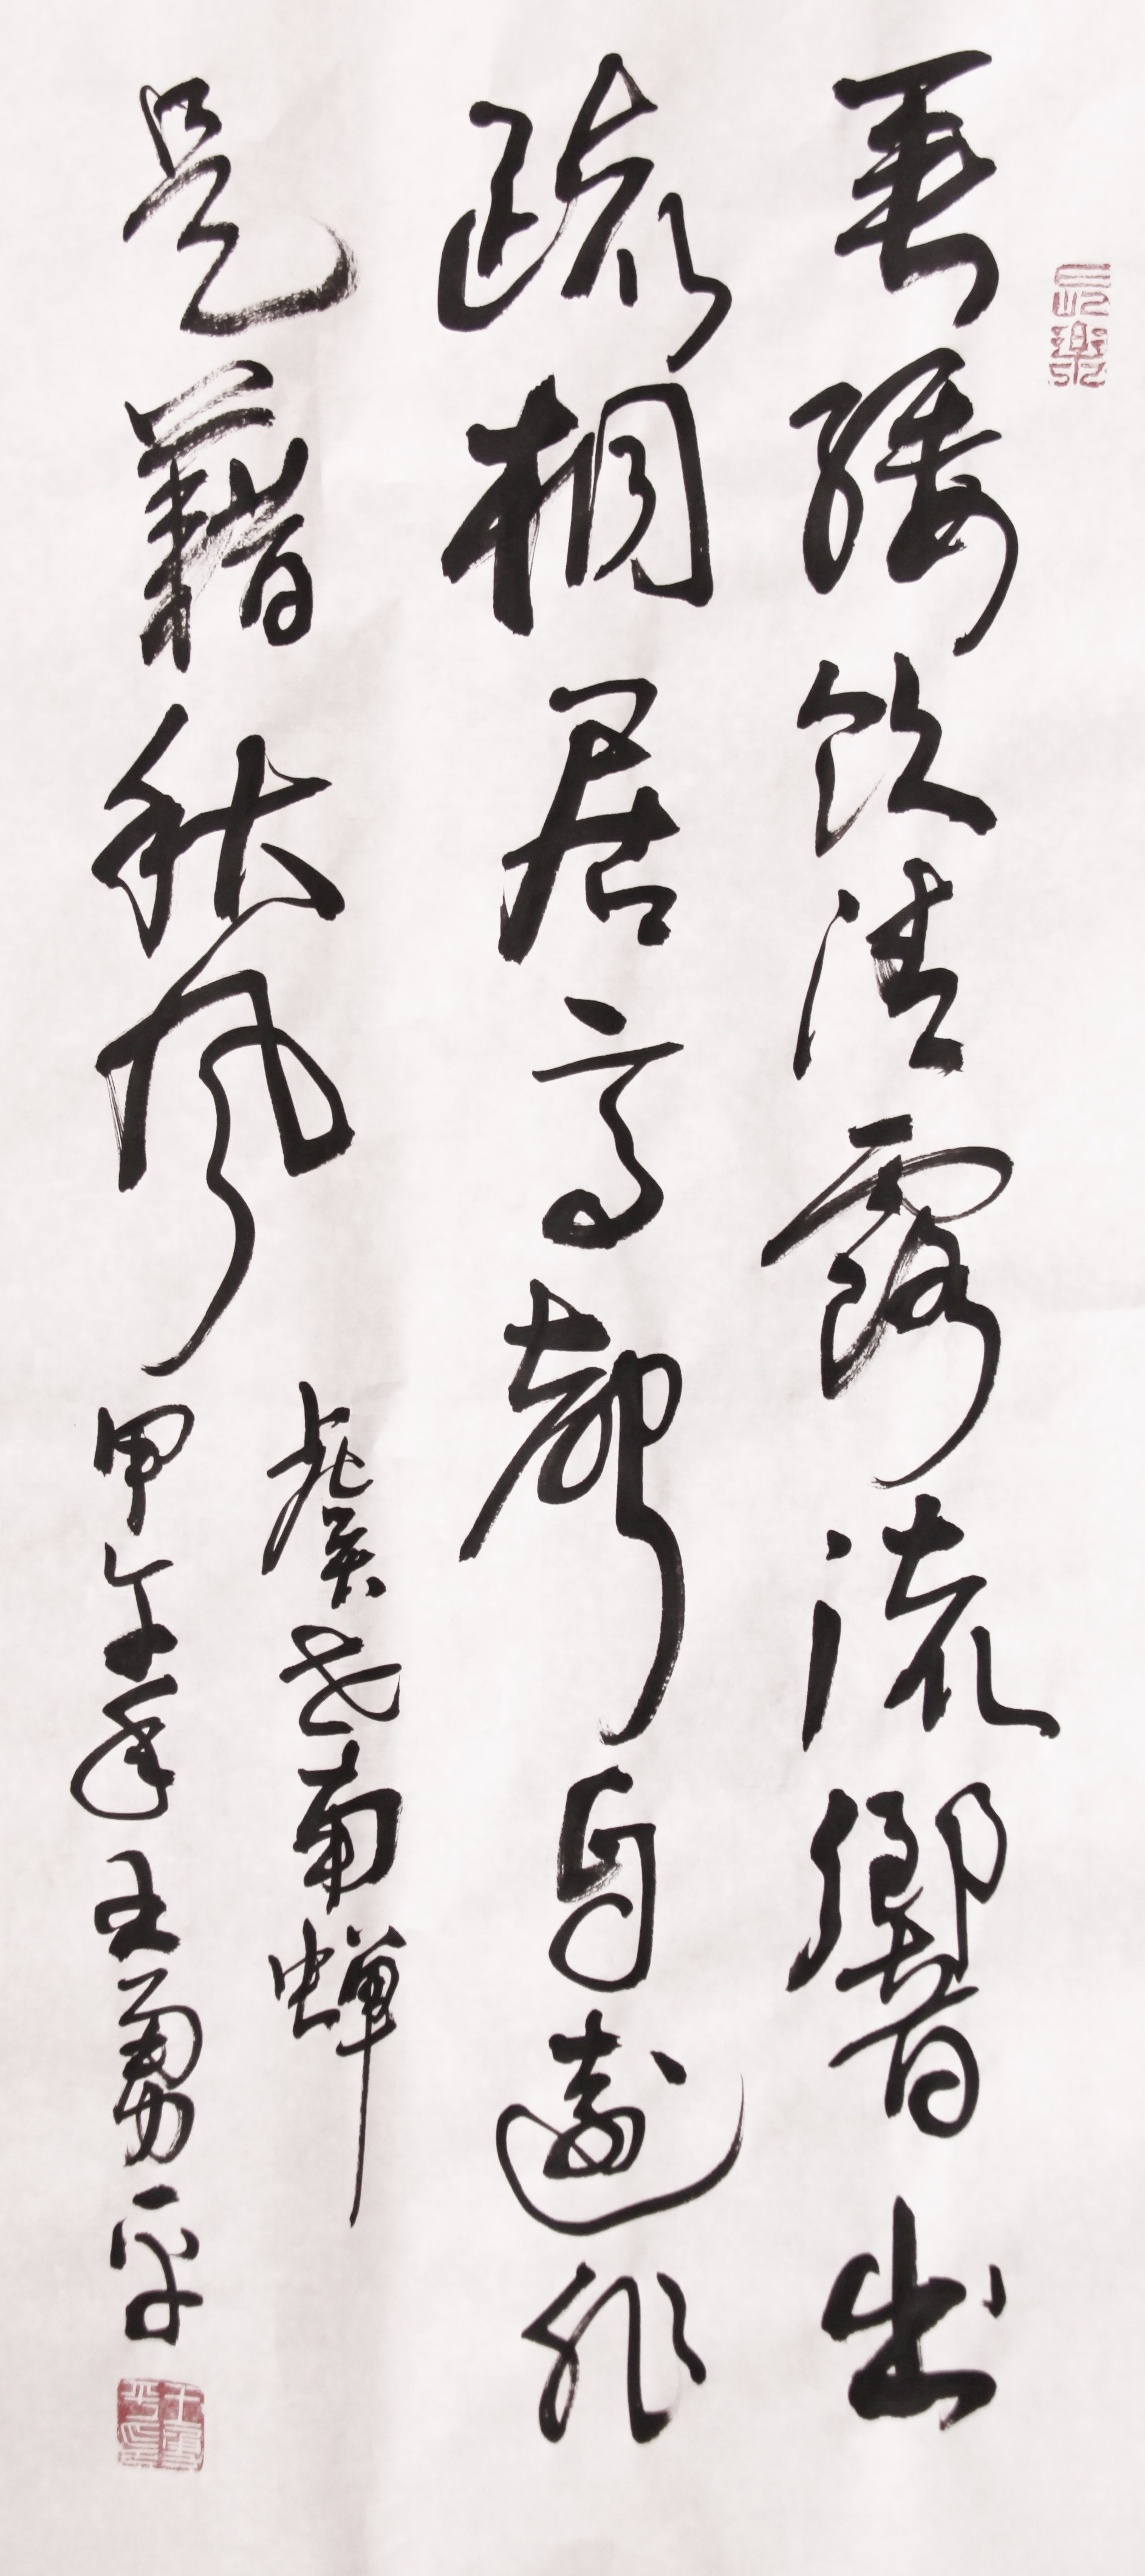 垂緌飲清露流響出
疏桐居高聲自遠非
是藉秋風
虞世南蝉
甲午年王勇平
王勇平印